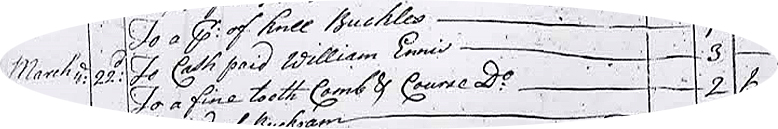 To a Pr. of Knee Buckles
March 22d. To Cash paid William Ennis 3
To a fine tooth Comb & Course Do. 2
Buckram